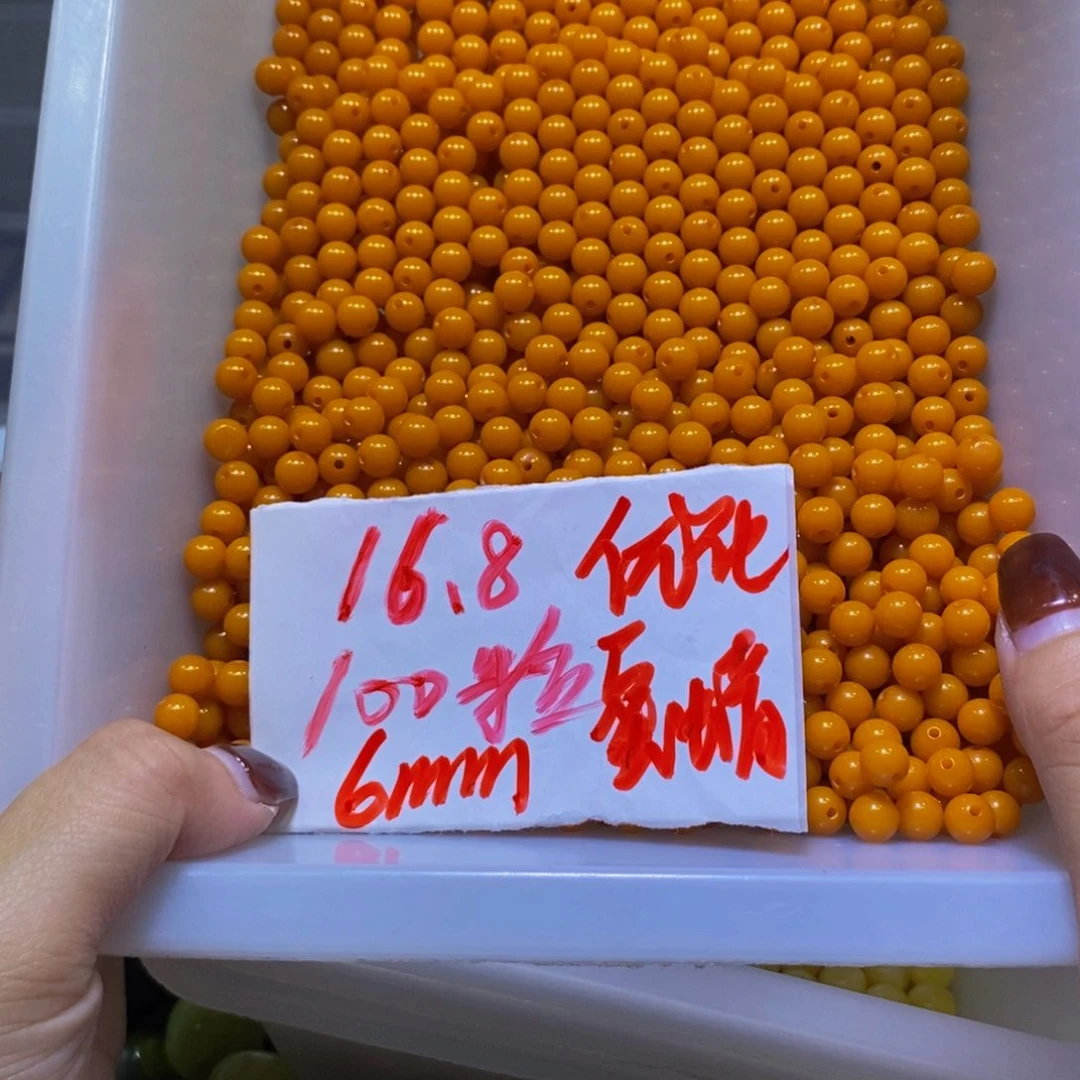 16.8 优化
100粒
6mm